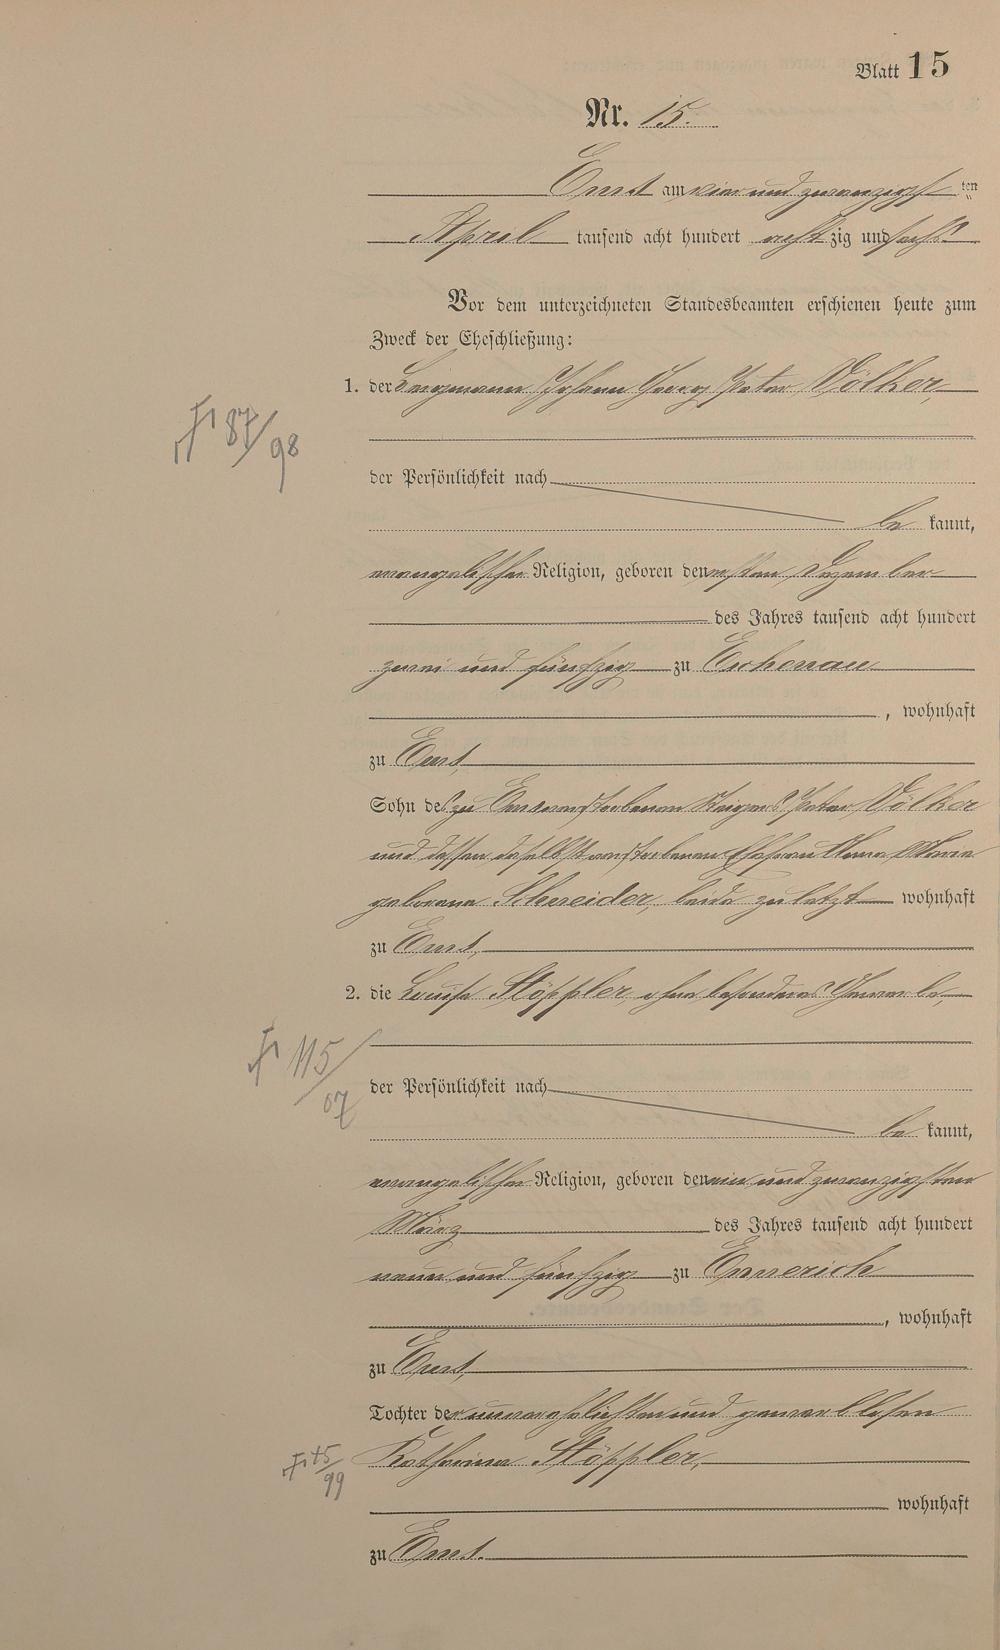 Blatt 15
Nr. 15.
Ems am vier und zwanzigst ten
April tausend acht hundert achtzig und sechs
Vor dem unterzeichneten Standesbeamten erschienen heute zum
Zweck der Eheschließung:
1. der Bergmann Johann Georg Peter Völker,
† 87/98
der Persönlichkeit nach
be kannt,
evangelischer Religion, geboren den ersten Dezember
des Jahres tausend acht hundert
zwei und fünfzig zu
, wohnhaft
zu Ems,
Sohn des zu Ems verstorbenen Peter Völker
und dessen daselbst verstorbenen Ehefrau Anna Marie
geborene Schneider, beide zuletzt wohnhaft
zu Ems,
2. die Louise Stöppler, ohne besonderes Gewerbe,
† 115/07
der Persönlichkeit nach
be kannt,
evangelischer Religion, geboren den ein und zwanzigsten
März des Jahres tausend acht hundert
neun und fünfzig zu Ennerich
, wohnhaft
zu Ems,
Tochter der unverehelichten und gewerblosen
† 15/99
Katharina Stöppler,
wohnhaft
zu Ems.